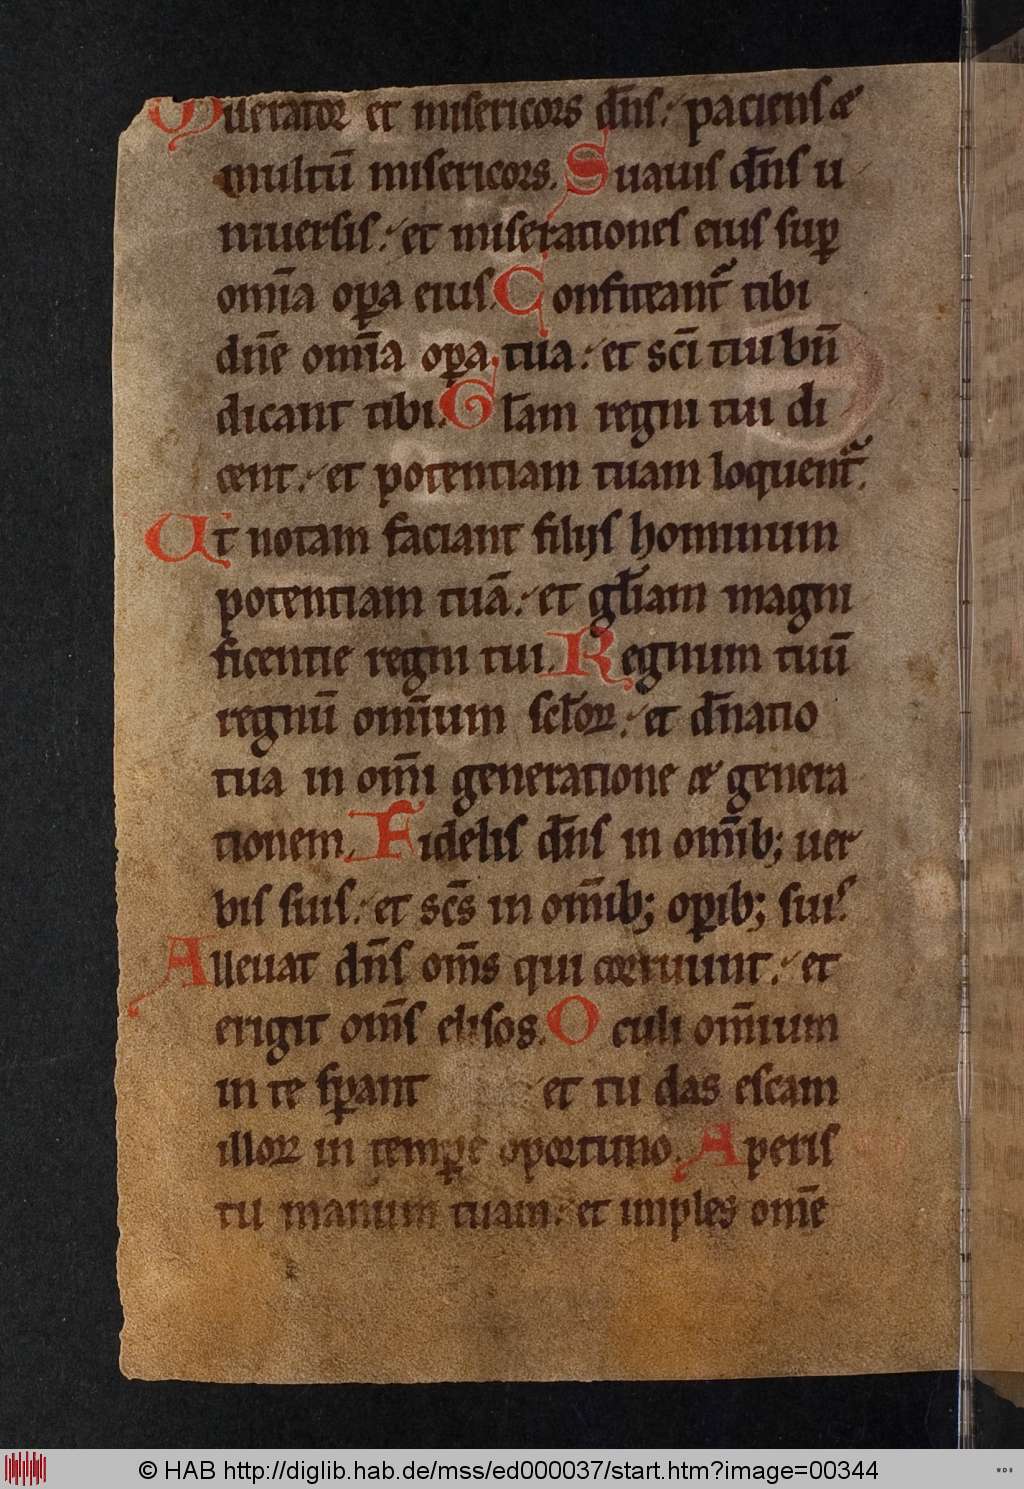 Miserator et misericors dn̄s: paciens ⁊
multū misericors. Suauis dn̄s u
niuersis: et miserationes eius suꝑ
om̄ia oꝑa eius. Confiteant᷑ tibi
dn̄e om̄ia oꝑa tua: et sc̄i tui bn̄
dicant tibi. Gl̄am regni tui di
cent: et potentiam tuam loquent᷑.
Ut notam faciant filijs hominum
potentiam tuā: et gl̄iam magni
ficentie regni tui. Regnum tuū
regnū om̄ium scl̄oꝝ: et dn̄atio
tua in om̄i generatione ⁊ genera
tionem. Fidelis dn̄s in om̄ib; uer
bis suis: et sc̄s in om̄ib; oꝑib; suis.
Alleuat dn̄s om̄s qui corruunt: et
erigit om̄s elisos. Oculi om̄ium
in te sꝑant et tu das escam
illoꝝ in temꝑe oportuno. Aperis
tu manum tuam: et imples om̄e
© HAB http://diglib.hab.de/mss/ed000037/start.htm?image=00344